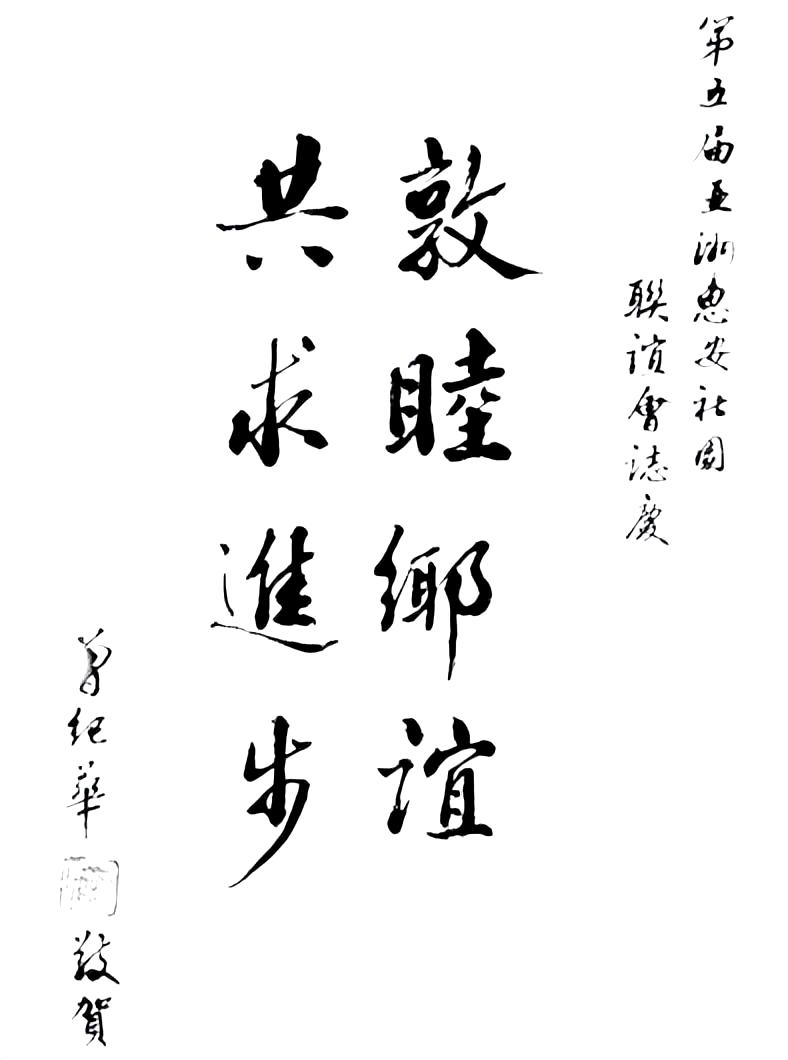 第五届亚洲惠安社團
聯誼會誌慶
敦睦鄉誼
共求進步
曾紀華
敬賀